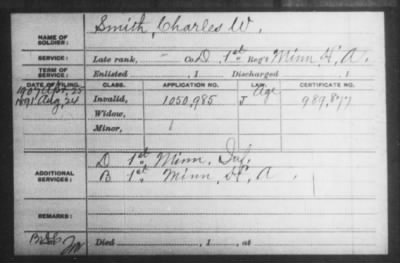 NAME OF SOLDIER: Smith, Charles W.
SERVICE: Late rank, - Co. D, 1st Reg't Minn. H. A.
TERM OF SERVICE: Enlisted , 1 Discharged , 1
DATE OF FILING. CLASS. APPLICATION NO. LAW. CERTIFICATE NO.
1907 Apr. 25 Age
1891 Aug. 24 Invalid, 1050,985 J 989,877
Widow,
Minor, 1
ADDITIONAL SERVICES: D 1st Minn. Inf.
B 1st Minn. H. A.
REMARKS:
Died , 1 , at